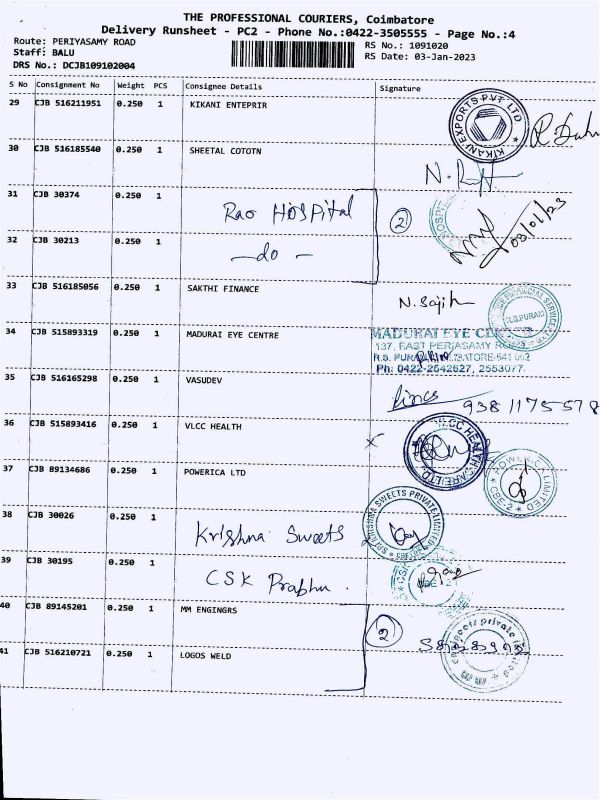 THE PROFESSIONAL COURIERS, Coimbatore
Delivery Runsheet - PC2 - Phone No.:0422-3505555 - Page No.:4
Route: PERIYASAMY ROAD
Staff: BALU
DRS No.: DCJB109102004
RS No.: 1091020
RS Date: 03-Jan-2023
S No Consignment No Weight PCS Consignee Details Signature
29 CJB 516211951 0.250 1 KIKANI ENTEPRIR
KIKANI EXPORTS PVT LTD
30 CJB 516185540 0.250 1 SHEETAL COTOTN
31 CJB 30374 0.250 1 Rao Hospital 2
03/01/23
32 CJB 30213 0.250 1 - do -
33 CJB 516185056 0.250 1 SAKTHI FINANCE N. Sajith
R.S.PURAM
34 CJB 515893319 0.250 1 MADURAI EYE CENTRE
MADURAI EYE CENTRE
137, EAST PERIASAMY ROAD
Ph: 0422-2542627, 2553077.
35 CJB 516165298 0.250 1 VASUDEV
9381175578
36 CJB 515893416 0.250 1 VLCC HEALTH
VLCC HEALTH CARE LTD.
37 CJB 89134686 0.250 1 POWERICA LTD
POWERICA LIMITED CBE-2
38 CJB 30026 0.250 1 Krishna Sweets
SRI KRISHNA SWEETS PRIVATE LIMITED
39 CJB 30195 0.250 1 CSK Prabhu.
40 CJB 89145201 0.250 1 MM ENGINGRS 2
41 CJB 516210721 0.250 1 LOGOS WELD